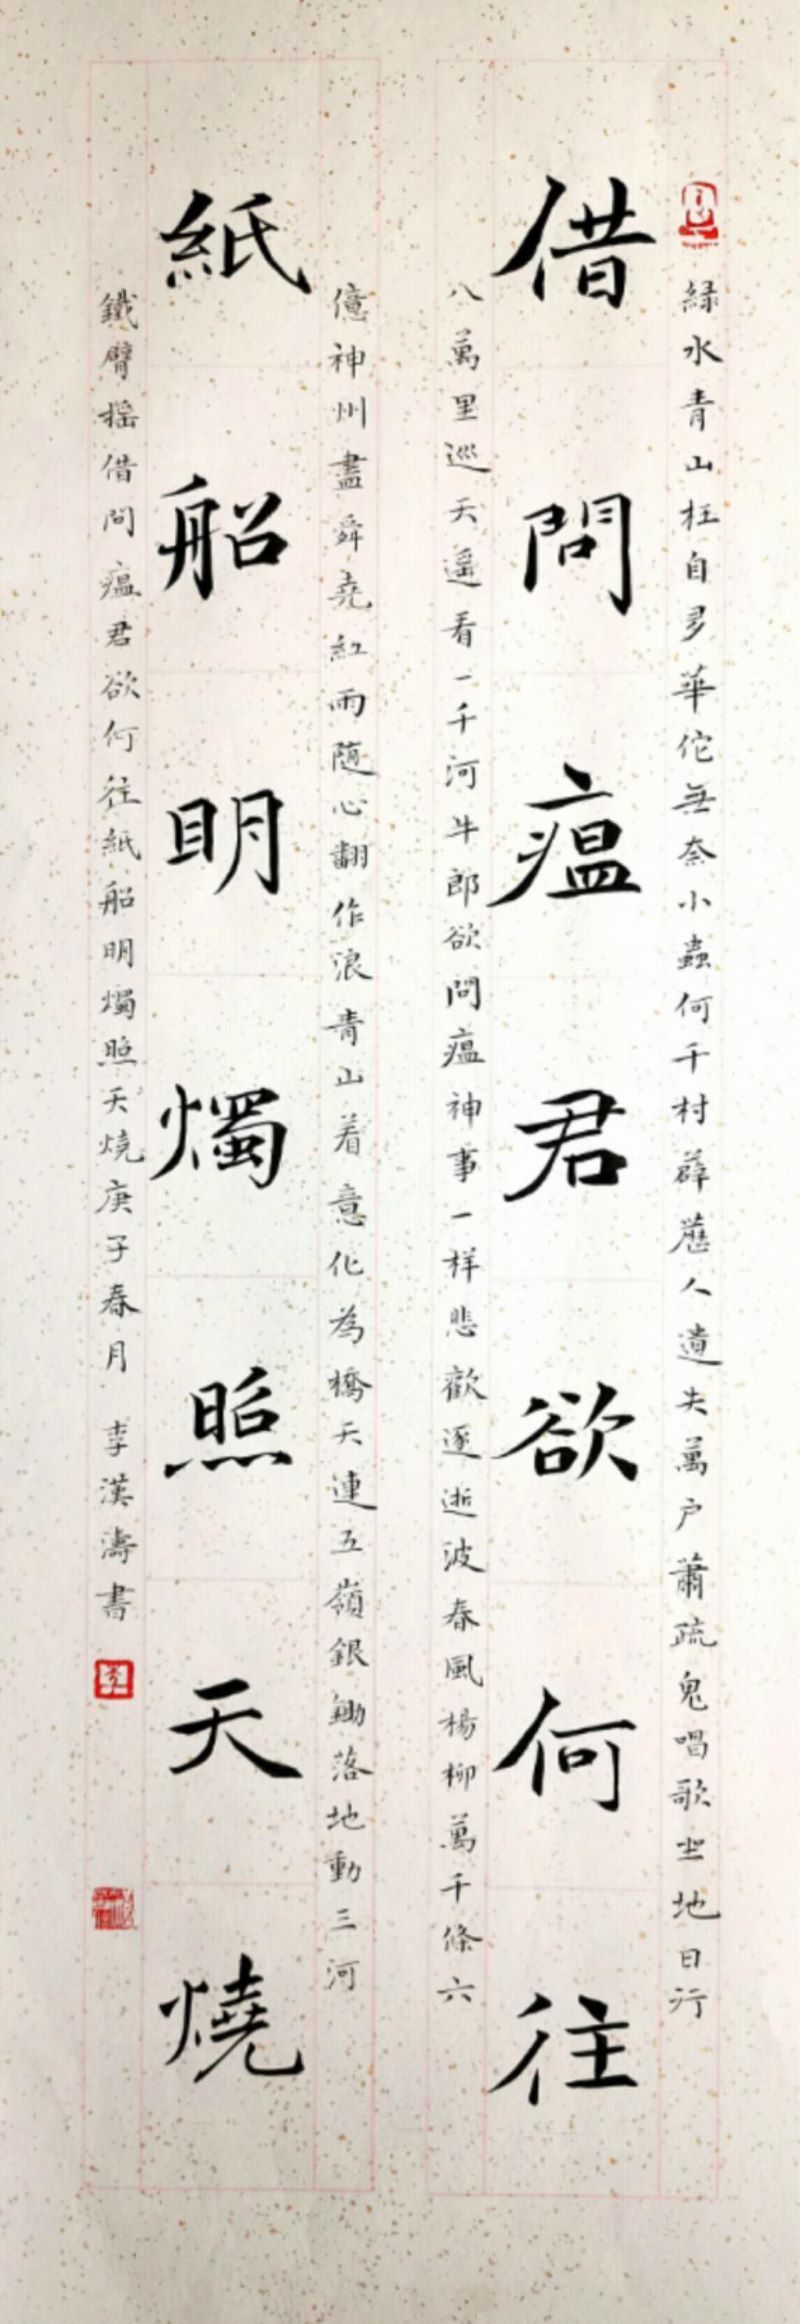 緑水青山枉自多華佗無奈小蟲何千村薜藶人遺失萬户蕭疏鬼唱歌坐地日行
借問瘟君欲何往
八萬里巡天遥看一千河牛郎欲問瘟神事一样悲歡逐逝波春風楊柳萬千條六
億神州盡舜堯紅雨随心翻作浪青山着意化為橋天連五嶺銀鋤落地動三河
紙船明燭照天燒
鐵臂摇借問瘟君欲何往紙船明燭照天燒庚子春月 李漢濤書
李